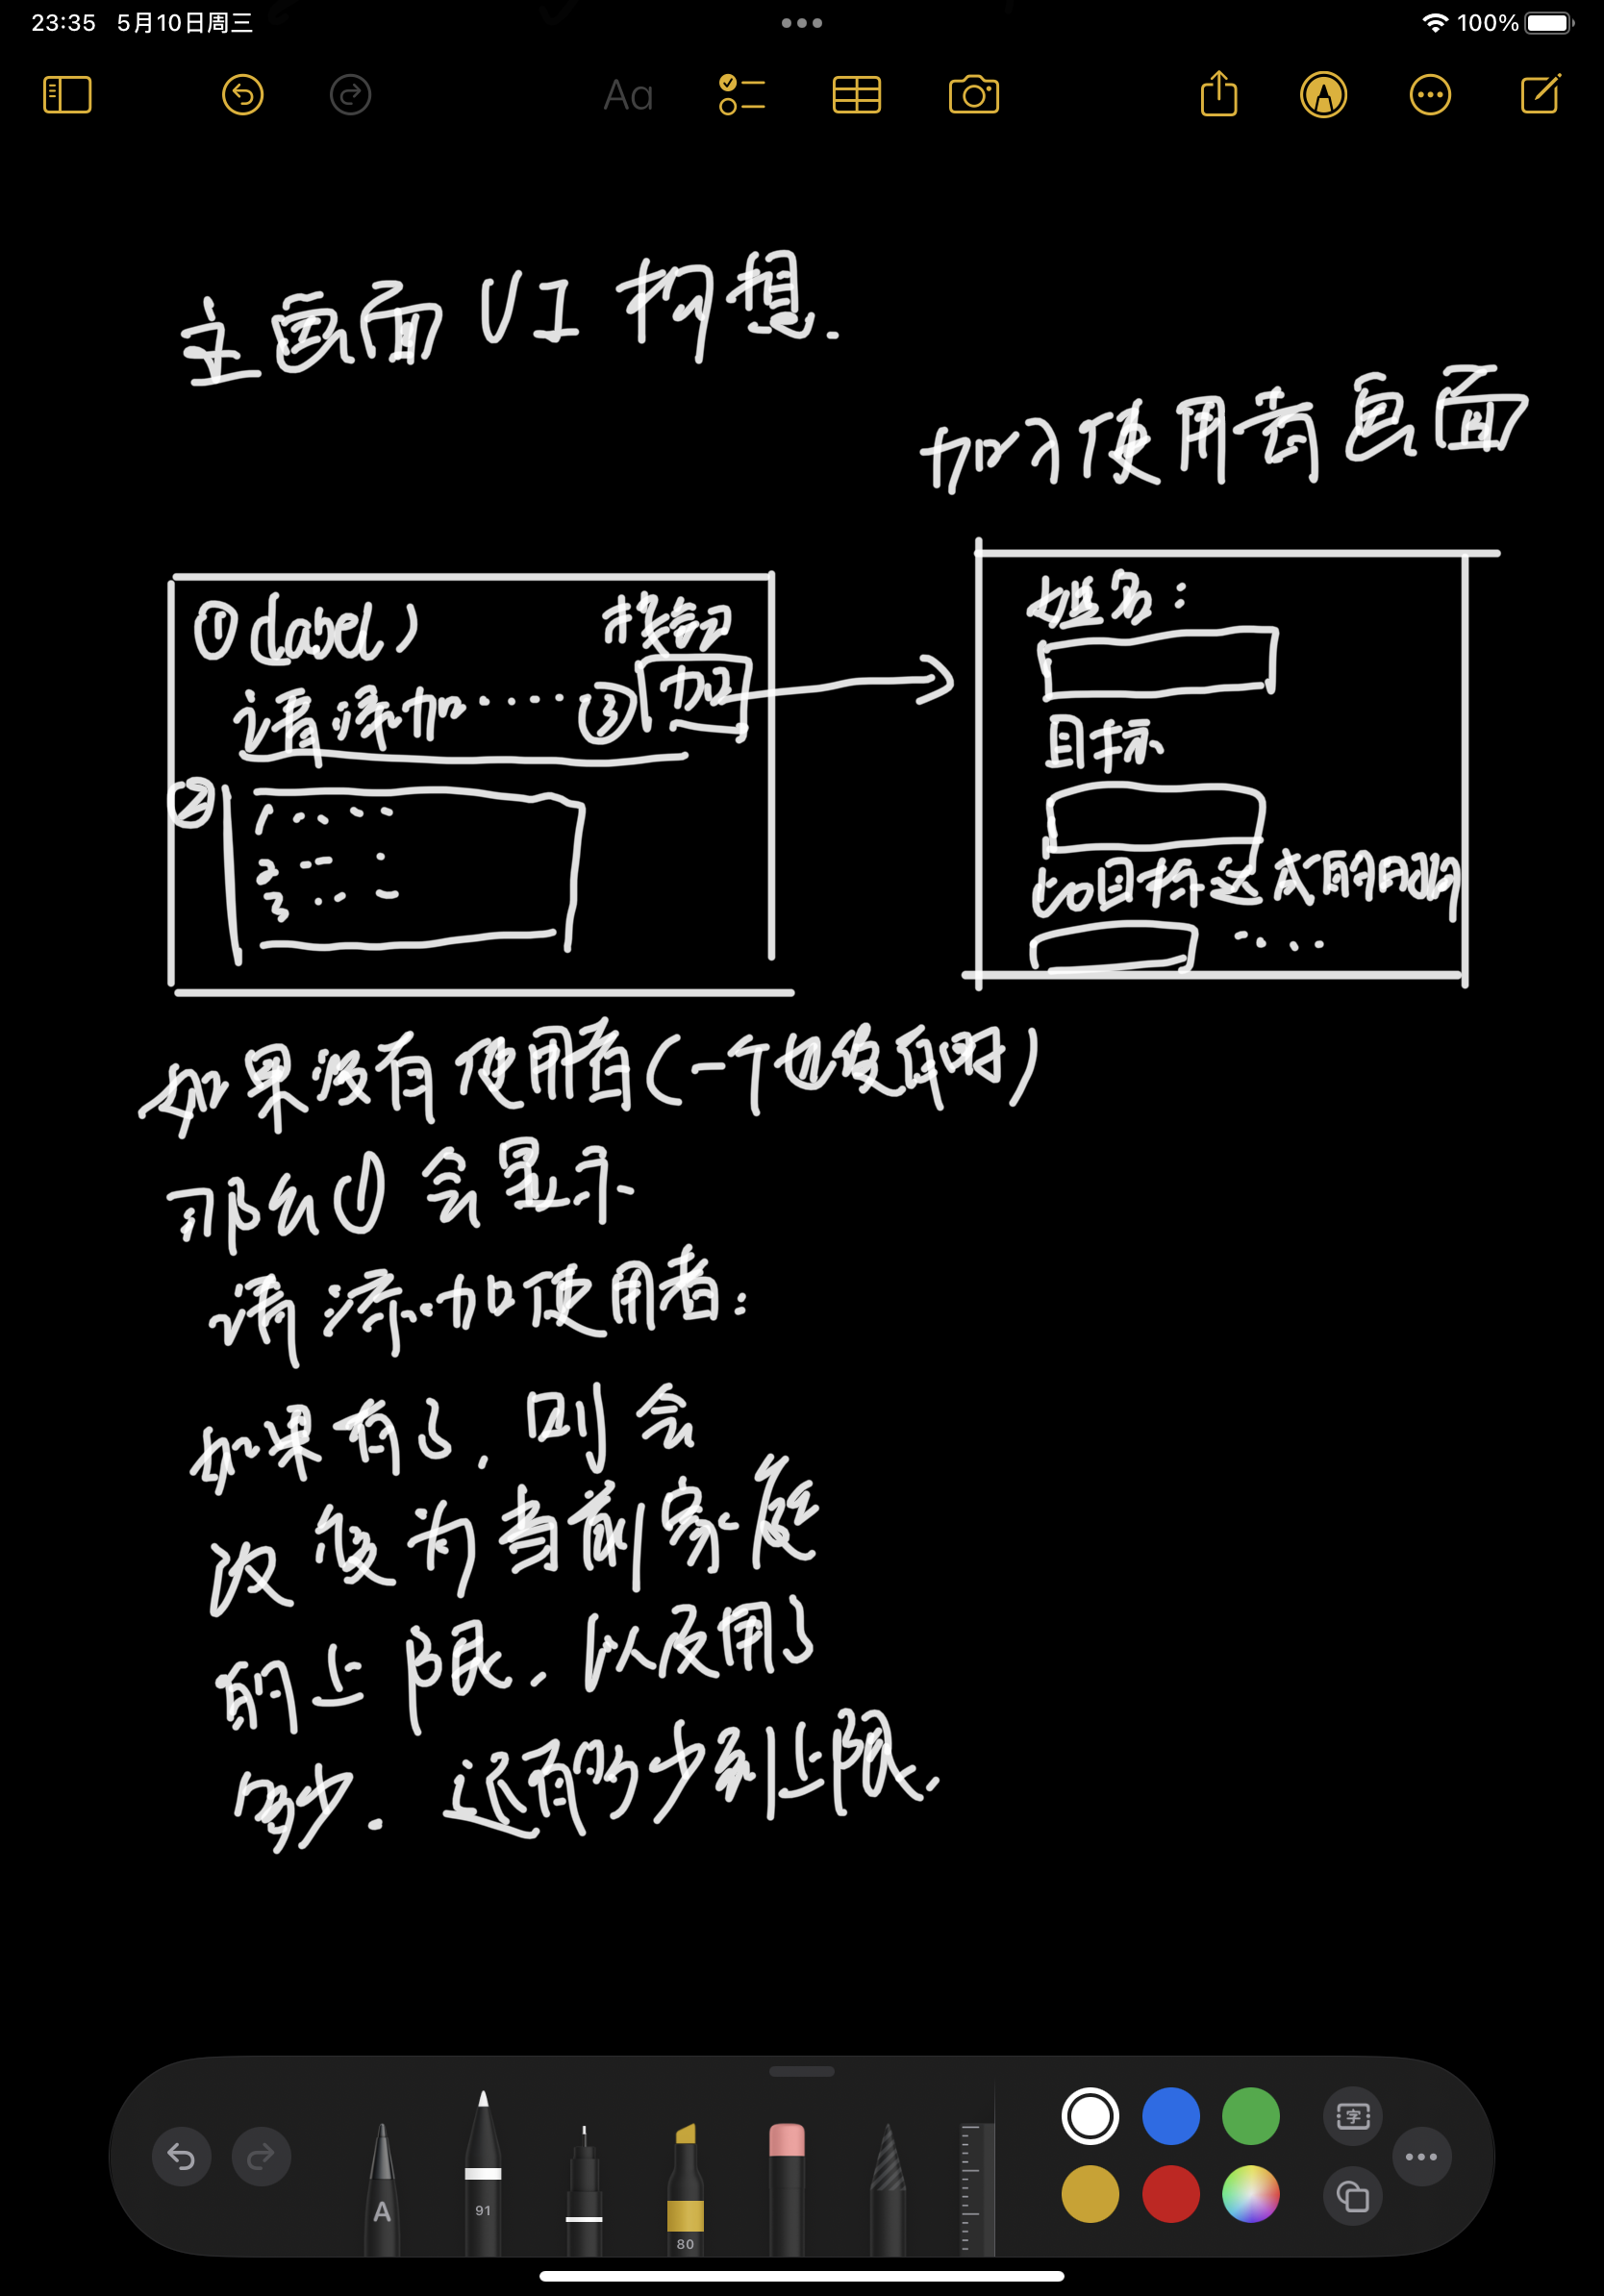 23:35 5月10日周三
100%
Aa
主画面 UI 构想.
加入使用者画面
① (label) 按钮
请添加····· ③ 加
②
1 ····
2 ···
3 ···
姓名:
目标
to目标达成的日期
····
如果没有使用者(一个也没有时)
那么① 会显示
请添加使用者:
如果有了, 则会
改 为当前家庭
的上限, 以及用了
多少. 还有多少到上限,
A
91
80
字